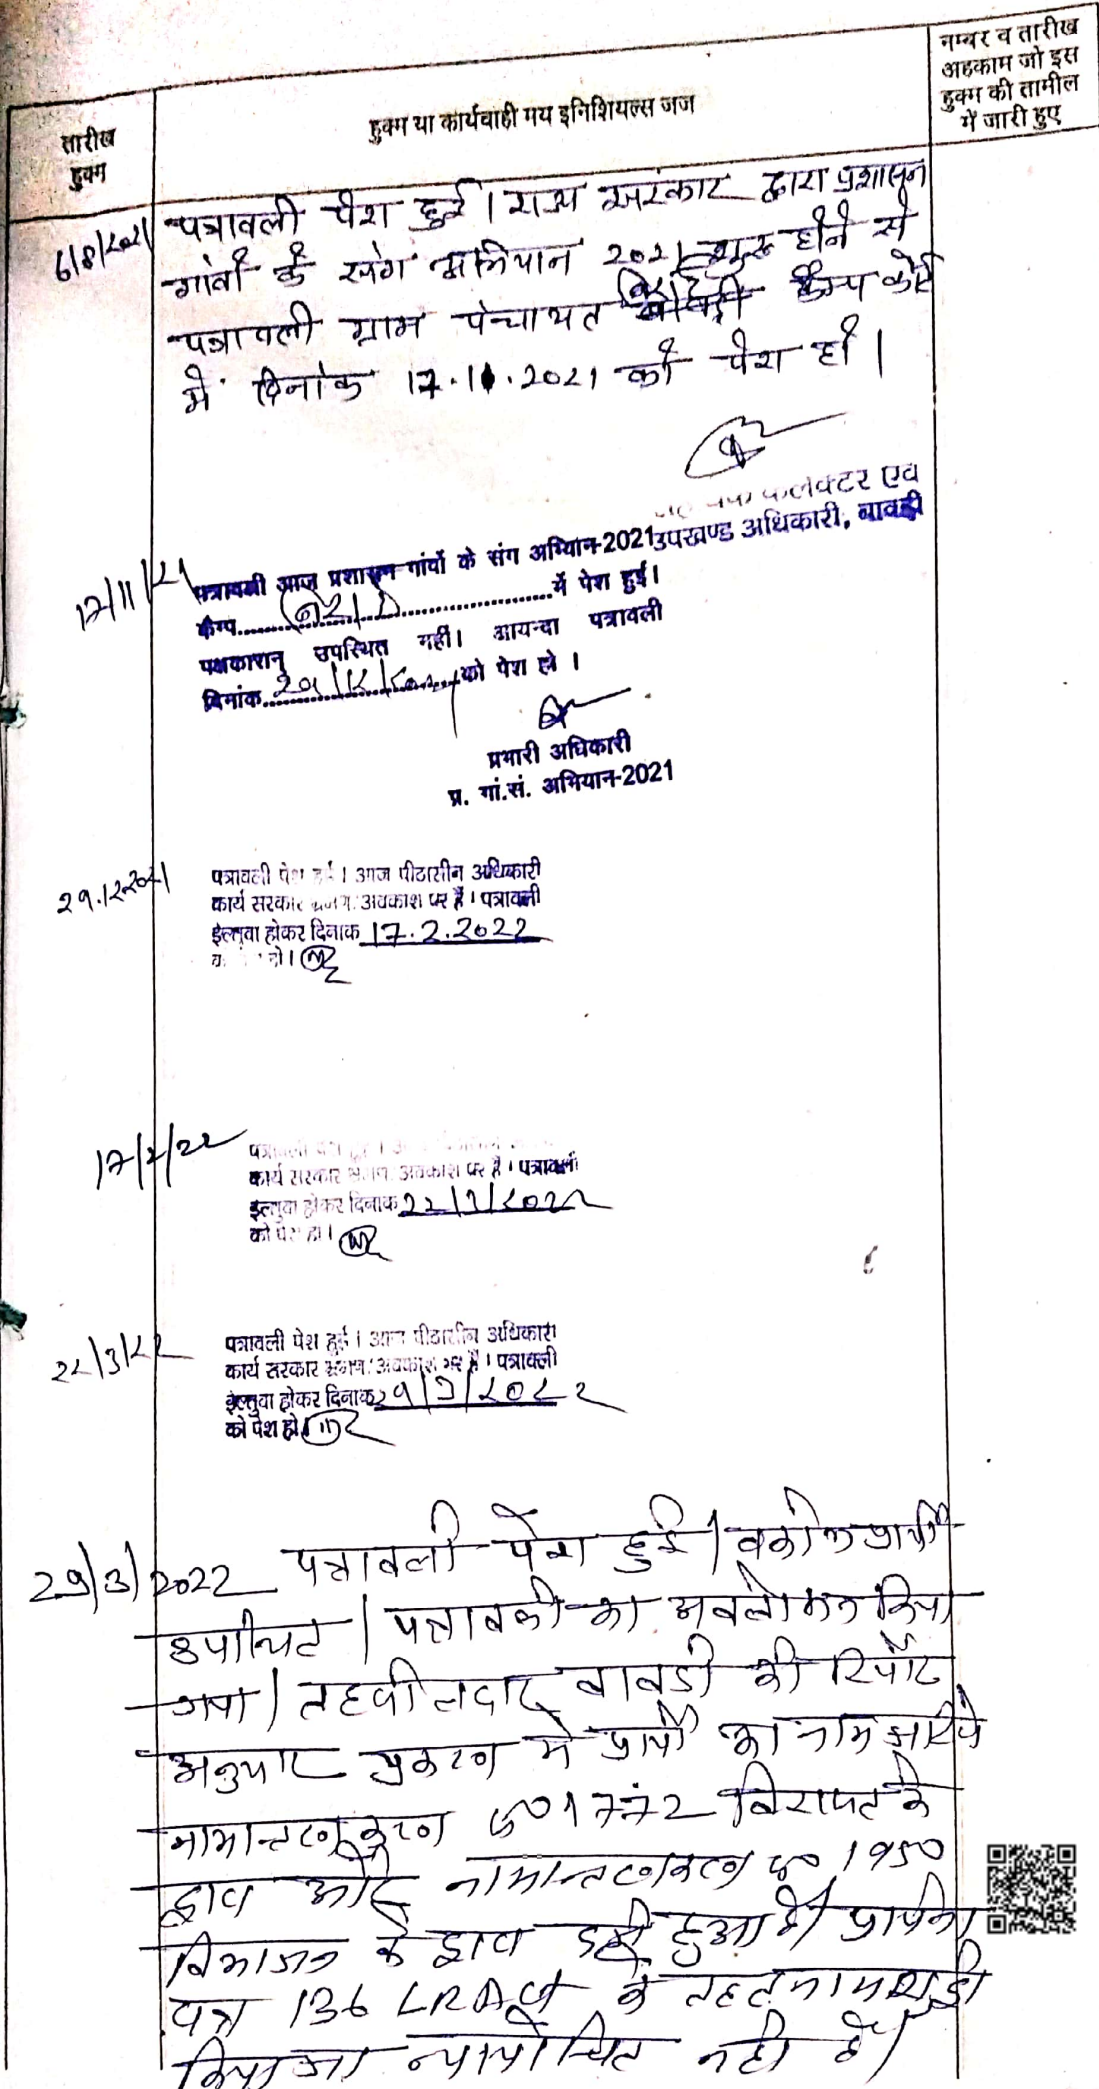 नम्बर व तारीख
अहकाम जो इस
हुक्म की तामील
में जारी हुए
तारीख
हुक्म
हुक्म या कार्यवाही मय इनिशियल्स जज
6/8/2021 पत्रावली पेश हुई। राज्य सरकार द्वारा प्रशासन
गांवों के संग अभियान 2021 शुरू होने से
पत्रावली ग्राम पंचायत कैम्प कोर्ट
में दिनांक 17.11.2021 को पेश हो।
कलेक्टर एवं
उपखण्ड अधिकारी, बावड़ी
17/11/21 पत्रावली आज प्रशासन गांवों के संग अभियान-2021
कैम्प.......में पेश हुई।
पक्षकारान् उपस्थित नहीं। आयन्दा पत्रावली
दिनांक 29/12/2021 को पेश हो।
प्रभारी अधिकारी
प्र. गां.सं. अभियान-2021
29.12.2021 पत्रावली पेश हुई। आज पीठासीन अधिकारी
कार्य सरकार भ्रमण/अवकाश पर है। पत्रावली
ईल्तुवा होकर दिनांक 17.2.2022
17/2/22 कार्य सरकार भ्रमण/अवकाश पर है। पत्रावली
ईल्तुवा होकर दिनांक 22/3/2022
को पेश हो।
22/3/22 पत्रावली पेश हुई। आज पीठासीन अधिकारी
कार्य सरकार भ्रमण/अवकाश पर है। पत्रावली
ईल्तुवा होकर दिनांक 29/3/2022
को पेश हो।
29/3/2022 पत्रावली पेश हुई। वकील प्रार्थी
उपस्थित। पत्रावली का अवलोकन किया
गया। तहसीलदार बावडी की रिपोर्ट
अनुसार प्रकरण में प्रार्थी का नाम जरिये
नामान्तरणकरण सं० 1772 विरासत के
द्वारा और नामान्तरणकरण सं० 1950
विभाजन के द्वारा दर्ज हुआ है। प्रार्थना
पत्र 136 LRAct के तहत नाम शुद्धी
किया जा न्यायोचित नहीं है।